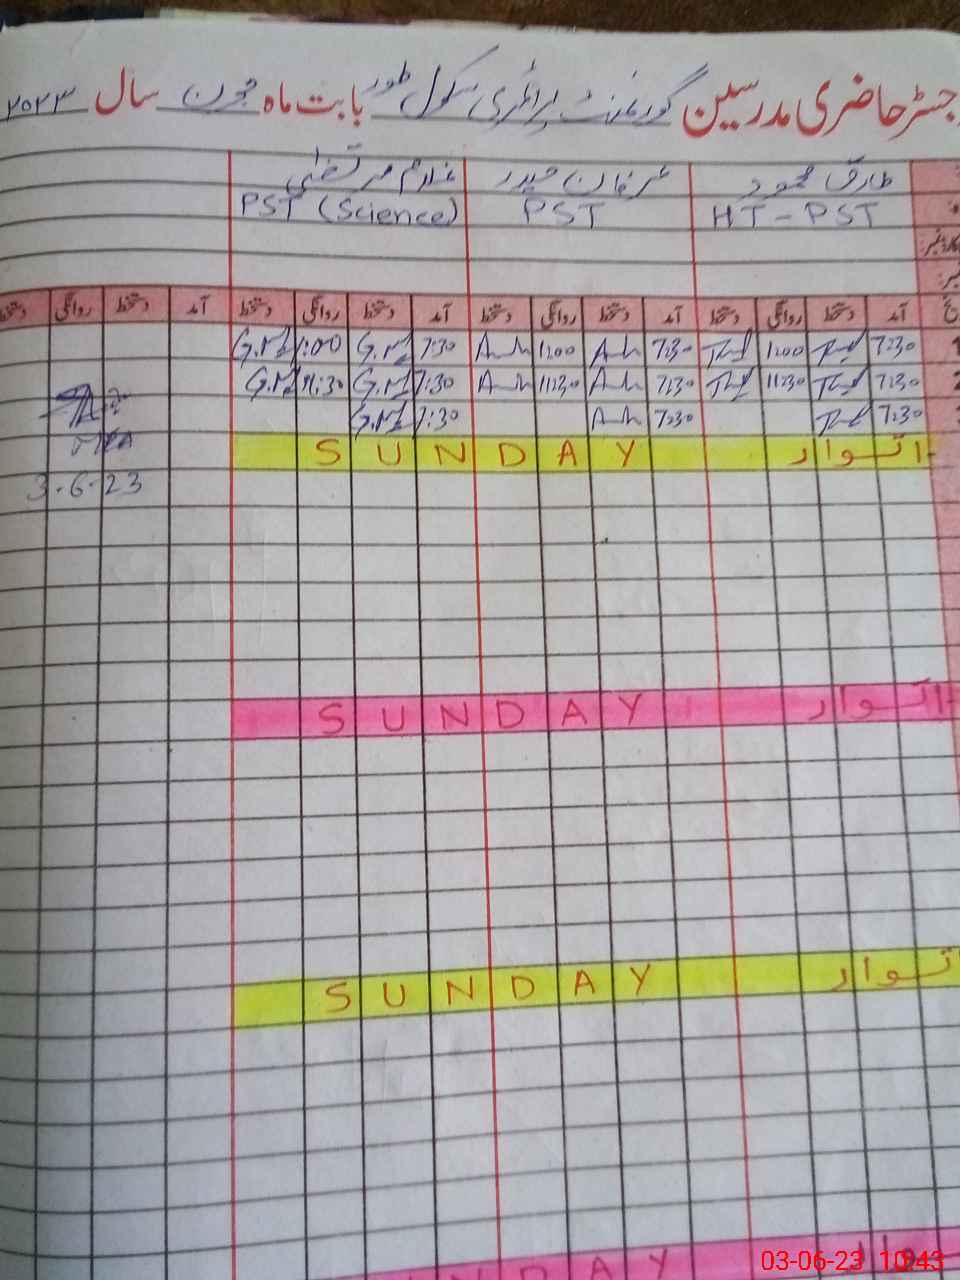 جسٹر حاضری مدرسین گورنمنٹ پرائمری سکول طور بابت ماہ جون سال ۲۰۲۳
طارق محمود عرفان حیدر غلام مرتضیٰ
HT-PST PST PST (Science)
آمد دستخط روانگی دستخط آمد دستخط روانگی دستخط آمد دستخط روانگی دستخط آمد دستخط روانگی
7:30 1200 7:30 1200 7:30 1:00 G.M G.M
7:30 11:30 7:30 11:30 7:30 11:30 G.M G.M
7:30 7:30 7:30 G.M
اتوار SUNDAY
3-6-23
اتوار SUNDAY
توار SUNDAY
NDAY
03-06-23 10:43